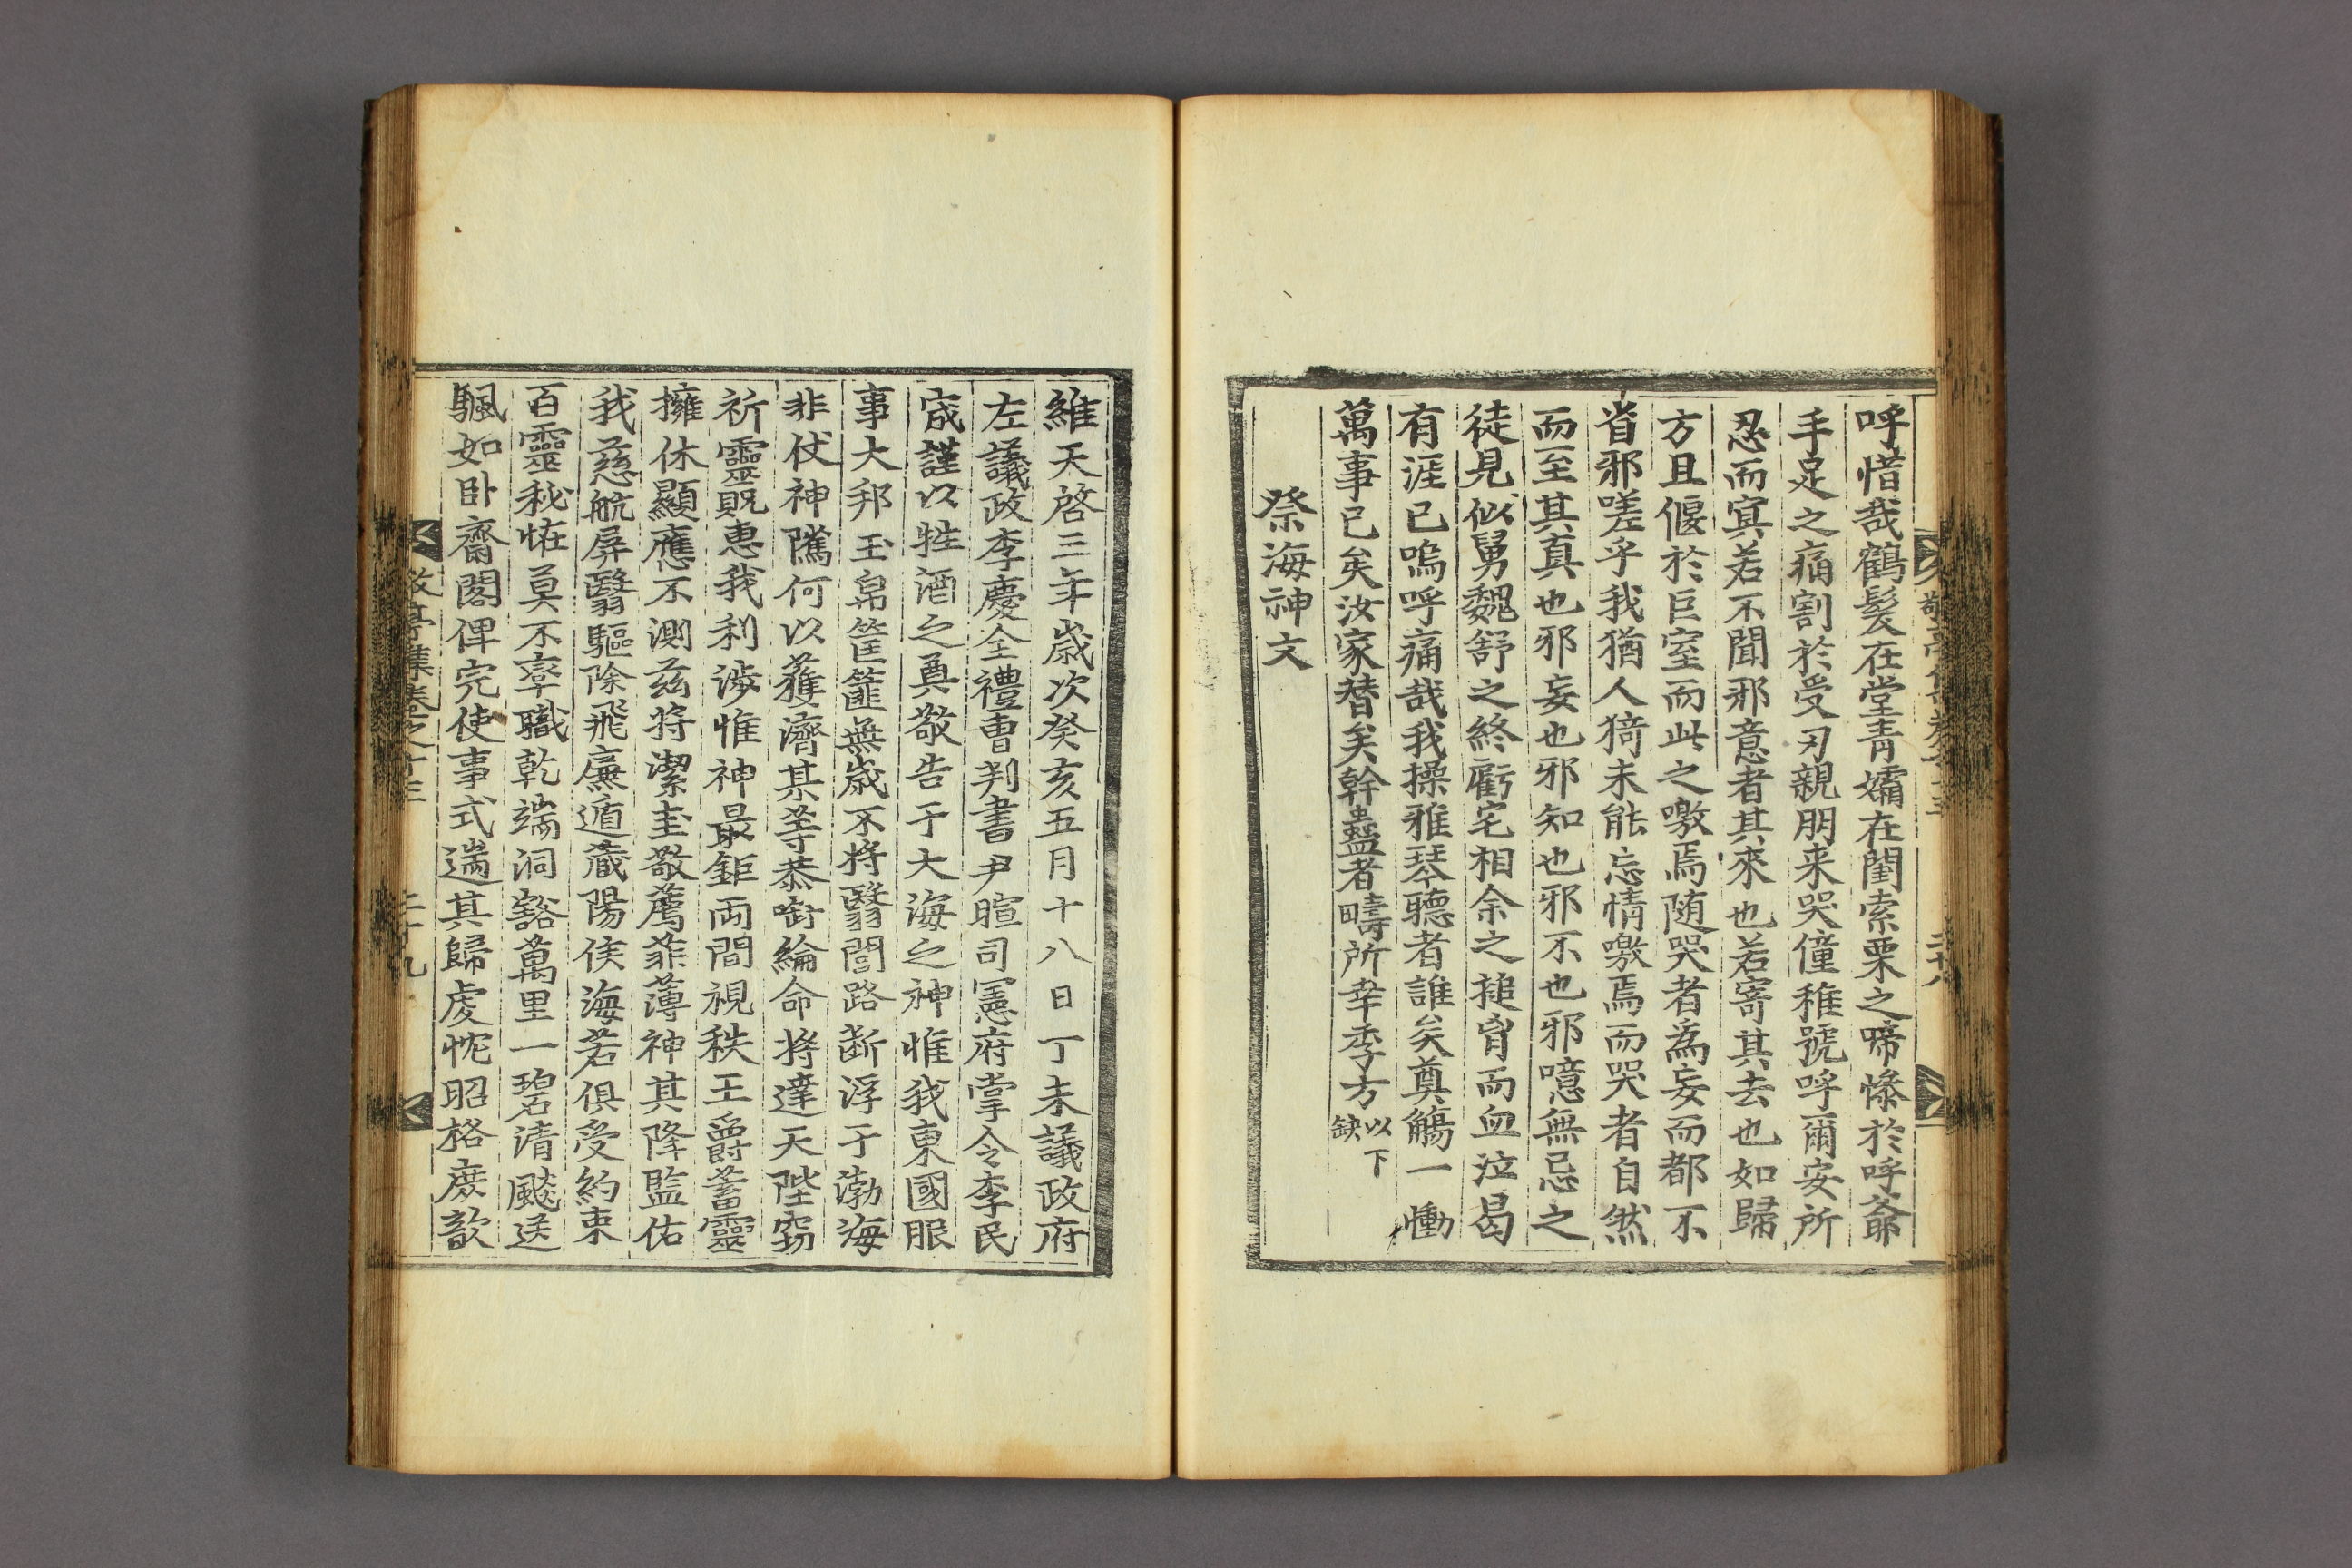 呼惜哉鶴髮在堂靑孀在閨索栗之啼慘於呼爺
手足之痛割於受刃親朋来哭僮稚號呼爾安所
忍而寞若不聞邪意者其來也若寄其去也如歸
方且偃於巨室而此之噭焉随哭者爲妄而都不
省邪嗟乎我猶人猗未能忘情噭焉而哭者自然
而至其真也邪妄也邪知也邪不也邪噫無忌之
徒見似舅魏舒之終虧宅相余之搥胷而血泣曷
有涯已嗚呼痛哉我操雅琴聽者誰矣奠觴一慟
萬事已矣汝家替矣幹蠱者疇所幸季方以下缺
祭海神文
維天啓三年歲次癸亥五月十八日丁未議政府
左議政李慶全禮曹判書尹暄司憲府掌令李民
宬謹以牲酒之奠敬告于大海之神惟我東國服
事大邦玉帛筐篚無歲不將翳閭路斷浮于渤海
非仗神隲何以獲濟某等恭啣綸命將達天陛窃
祈靈貺惠我利涉惟神最鉅両間視秩王爵蓄靈
擁休顯應不測兹将潔圭敬薦菲薄神其降監佑
我慈航屏翳驅除飛廉遁蔵陽侯海若俱受約束
百靈秘恠莫不率職乾端洞豁萬里一碧清飈送
颿如卧齋閤俾完使事式遄其歸虔忱昭格庶歆
敬亭集卷之十三
二十九
二十八